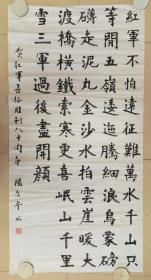 紅軍不怕遠征難萬水千山只
等閒五嶺逶迤騰細浪烏蒙磅
礴走泥丸金沙水拍雲崖暖大
渡橋橫鐵索寒更喜岷山千里
雪三軍過後盡開顏
紅軍長征勝利八十周年